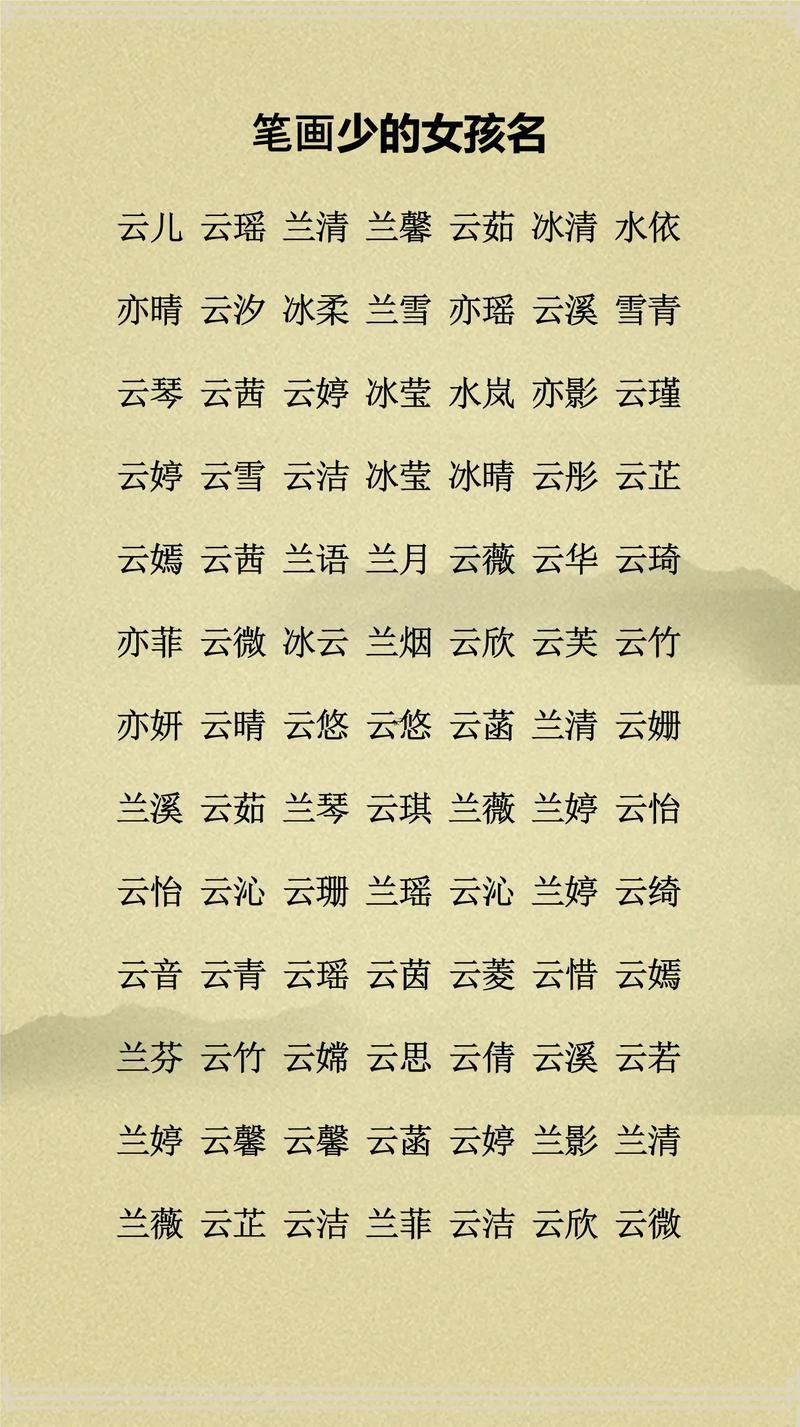 笔画少的女孩名
云儿 云瑶 兰清 兰馨 云茹 冰清 水依
亦晴 云汐 冰柔 兰雪 亦瑶 云溪 雪青
云琴 云茜 云婷 冰莹 水岚 亦影 云瑾
云婷 云雪 云洁 冰莹 冰晴 云彤 云芷
云嫣 云茜 兰语 兰月 云薇 云华 云琦
亦菲 云微 冰云 兰烟 云欣 云芙 云竹
亦妍 云晴 云悠 云悠 云菡 兰清 云姗
兰溪 云茹 兰琴 云琪 兰薇 兰婷 云怡
云怡 云沁 云珊 兰瑶 云沁 兰婷 云绮
云音 云青 云瑶 云茵 云菱 云惜 云嫣
兰芬 云竹 云嫦 云思 云倩 云溪 云若
兰婷 云馨 云馨 云菡 云婷 兰影 兰清
兰薇 云芷 云洁 兰菲 云洁 云欣 云微